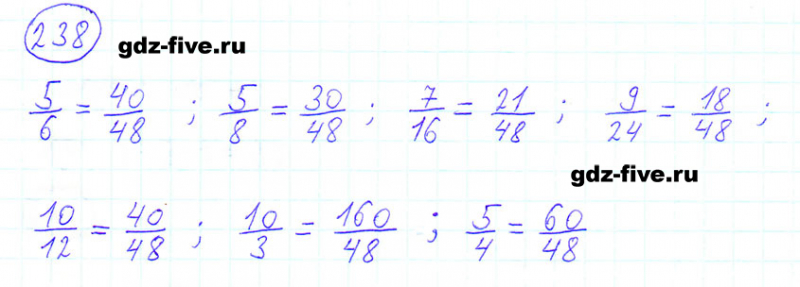 238 gdz-five.ru
5/6 = 40/48 ; 5/8 = 30/48 ; 7/16 = 21/48 ; 9/24 = 18/48 ;
gdz-five.ru
10/12 = 40/48 ; 10/3 = 160/48 ; 5/4 = 60/48